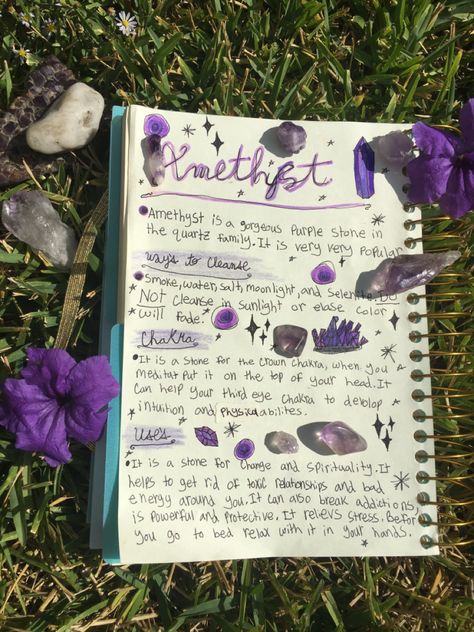 Amethyst
Amethyst is a gorgeous purple stone in
the quartz family. It is very very popular
ways to Cleanse
Smoke, water, salt, moonlight, and selenite. Do
NOT cleanse in sunlight or elase color
will fade.
Chakra
It is a stone for the crown chakra, when you
meditat put it on the top of your head. It
can help your third eye chakra to deblop
intuition and physical abilites.
Uses
It is a stone for change and spirituality. It
helps to get rid of toxic relationships and bad
energy around you. It can also break addictions,
is powerful and protective. It relevs stress. Befor
you go to bed relax with it in your hands.